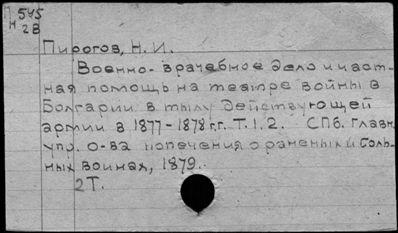 П 545
н 28
Пирогов, Н. И.
Военно-врачебное дело и част-
ная помощь на театре войны в
Болгарии и в тылу действующей
армии в 1877-1878 г.г. Т. 1. 2. СПб. Главн.
упр. о-ва попечения о раненых и боль-
ных воинах, 1879.
2 Т.